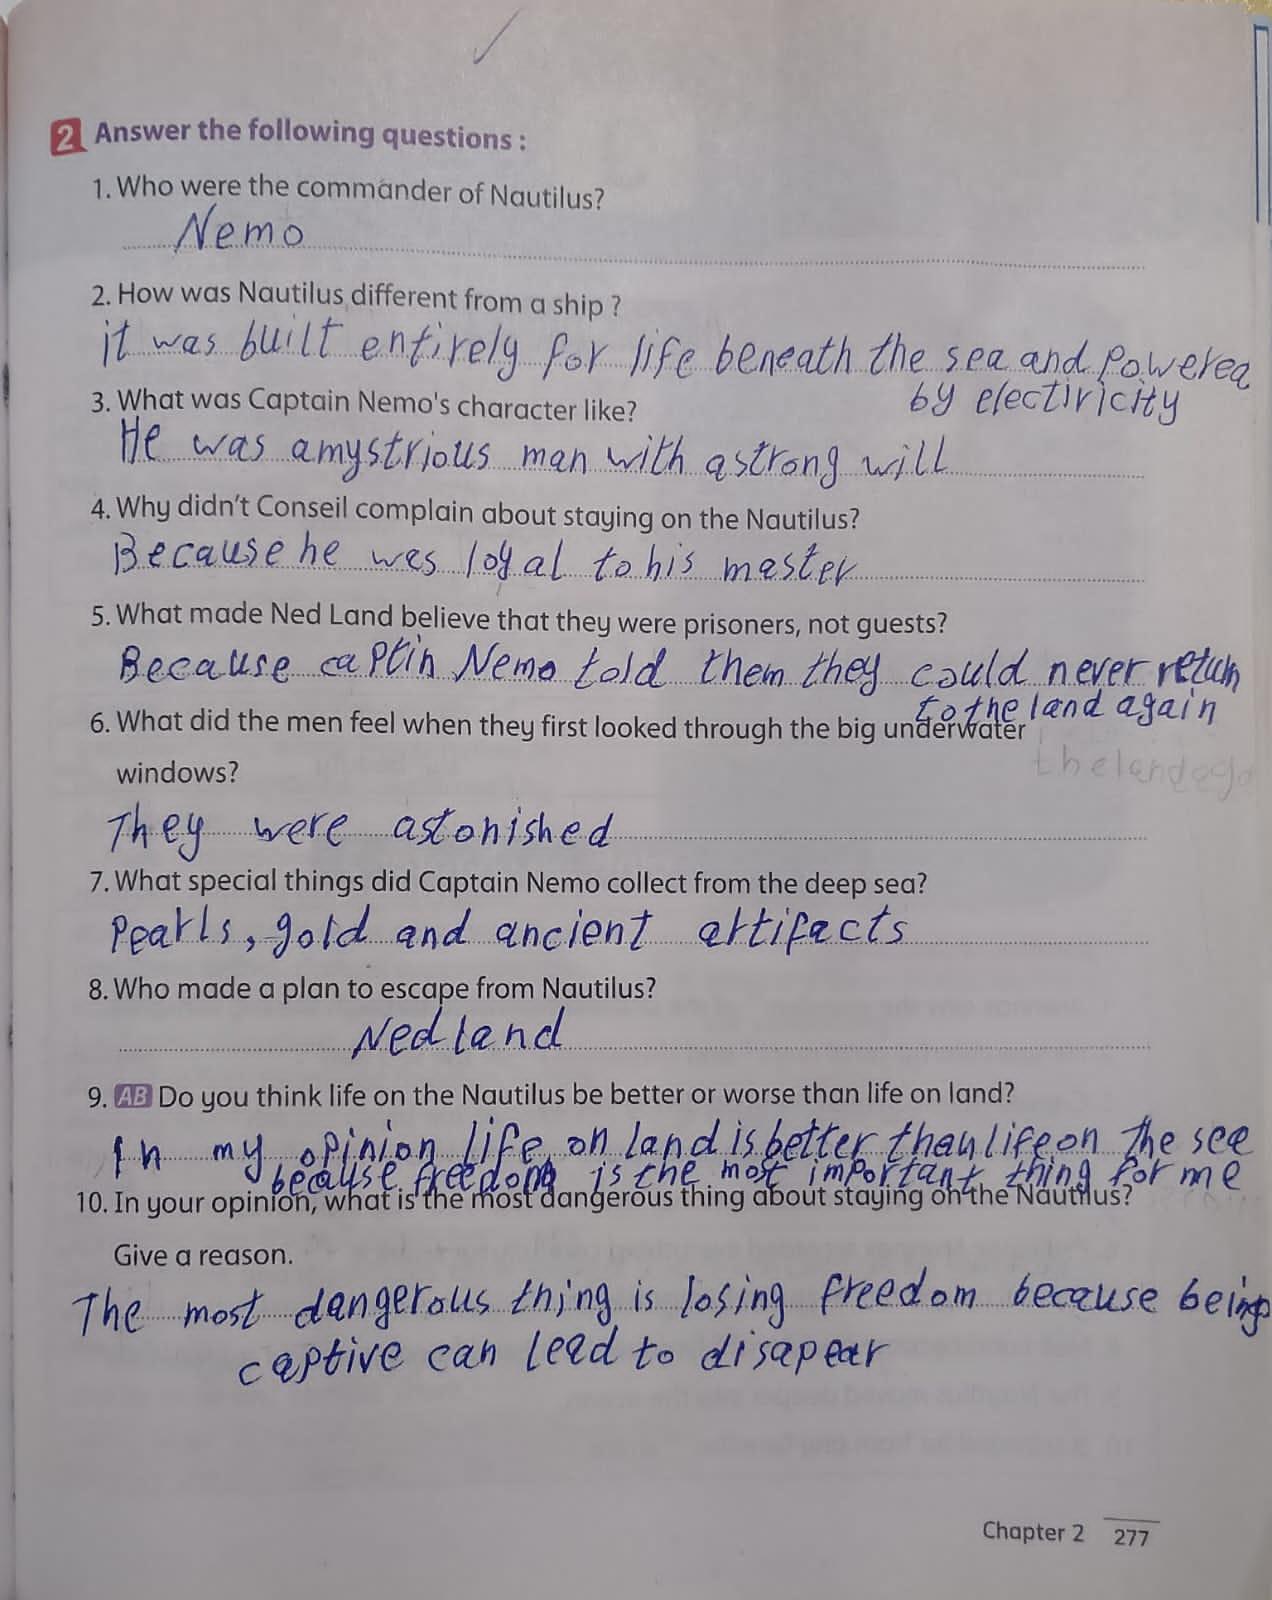 2 Answer the following questions :
1. Who were the commander of Nautilus?
Nemo
2. How was Nautilus different from a ship ?
it was built entirely for life beneath the sea and powered
by electiricity
3. What was Captain Nemo's character like?
He was amystrious man with a strong will
4. Why didn't Conseil complain about staying on the Nautilus?
Because he was loyal to his master
5. What made Ned Land believe that they were prisoners, not guests?
Because captin Nemo told them they could never return
to the land again
6. What did the men feel when they first looked through the big underwater
windows?
They were astonished
7. What special things did Captain Nemo collect from the deep sea?
Pearls, gold and ancient artifacts
8. Who made a plan to escape from Nautilus?
Ned land
9. AB Do you think life on the Nautilus be better or worse than life on land?
In my opinion life on land is better than life on the sea
because freedom is the most important thing for me
10. In your opinion, what is the most dangerous thing about staying on the Nautilus?
Give a reason.
The most dangerous thing is losing freedom because being
captive can lead to disapear
Chapter 2 277